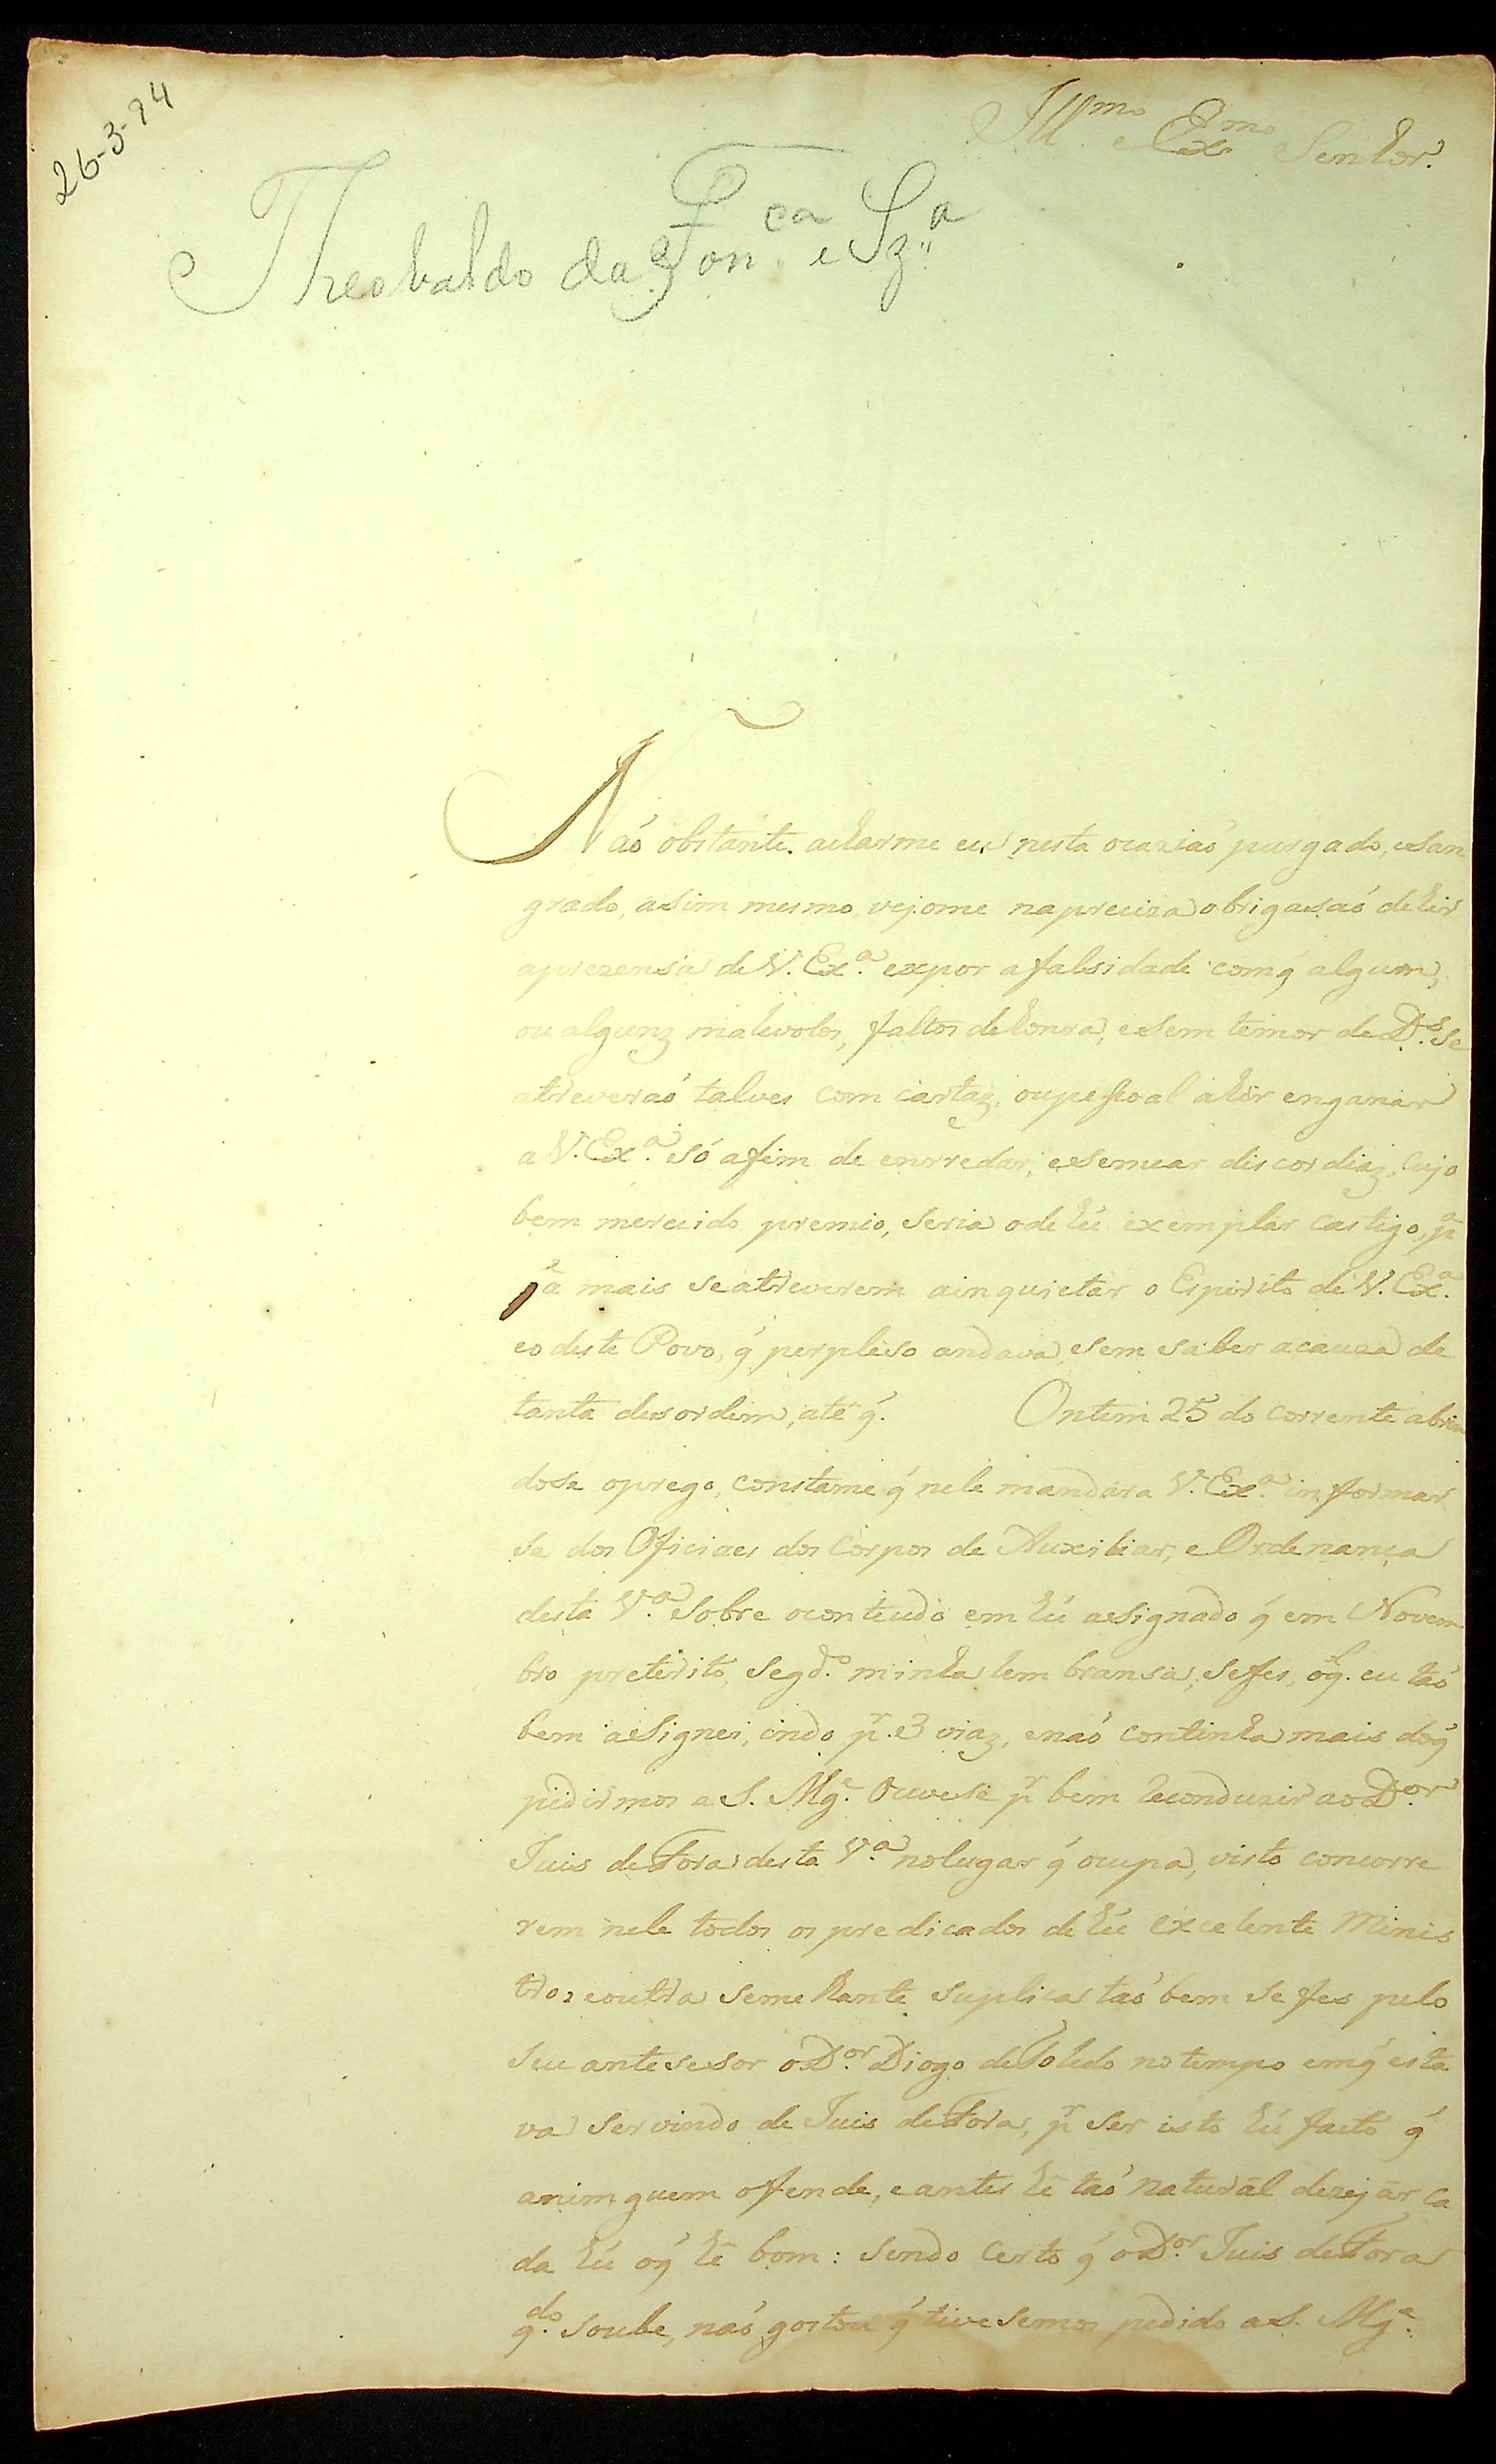 26-3-94
Ill.mo e Ex.mo Senhor.
Theobaldo da Fon.ca e Sz.a
Naó obstante acharme eu nesta ocaziaó purgado, e san
grado, asim mesmo, vejome na preciza obrigasaó de hir
a prezensa de V. Ex.a expor a falsidade com q́ algum,
ou algunz malevolos, faltos de honra, e sem temor de D.s se
atreveraó talves com cartaz, ou pesoal a hir enganar
a V. Ex.a só afim de enrredar, e semear discordiaz, cujo
bem merecido premio, seria o de hú exemplar castigo, p.a
ja mais se atreverem a inquietar o Espirito de V. Ex.a
e o deste Povo, q́ perpleso andava, sem saber a cauza de
tanta desordem, até q́. Ontem 25 do corrente abrin
dose o prego, constame q́ nele mandara V. Ex.a informar
se dos Oficiaes dos Corpos de Auxiliar, e Ordenança
desta V.a sobre o conteudo em hú asignado q́ em Novem
bro preterito, segd.o minha lembransa, se fes, o q́. eu taó
bem asignei, indo p.r 3 viaz, e naó continha mais do q́
pidirmos a S. Mg.e Ouvese p.r bem Reconduzir ao D.or
Juis de Fora desta V.a no lugar q́ ocupa, visto concorre
rem nele todos os predicados de hú excelente Minis
tro: e outra semelhante suplica taó bem se fes pelo
seu antesesor o D.or Diogo de Toledo no tempo em q́ esta
va servindo de Juis de Fora, p.r ser isto hú facto q́
a nimguem ofende, e antes hé taó natural dezejar ca
da hú o q́ hé bom: sendo certo q́ o D.or Juis de Fora
q.do soube, naó gostou q́ tivesemos pedido a S. Mg.e